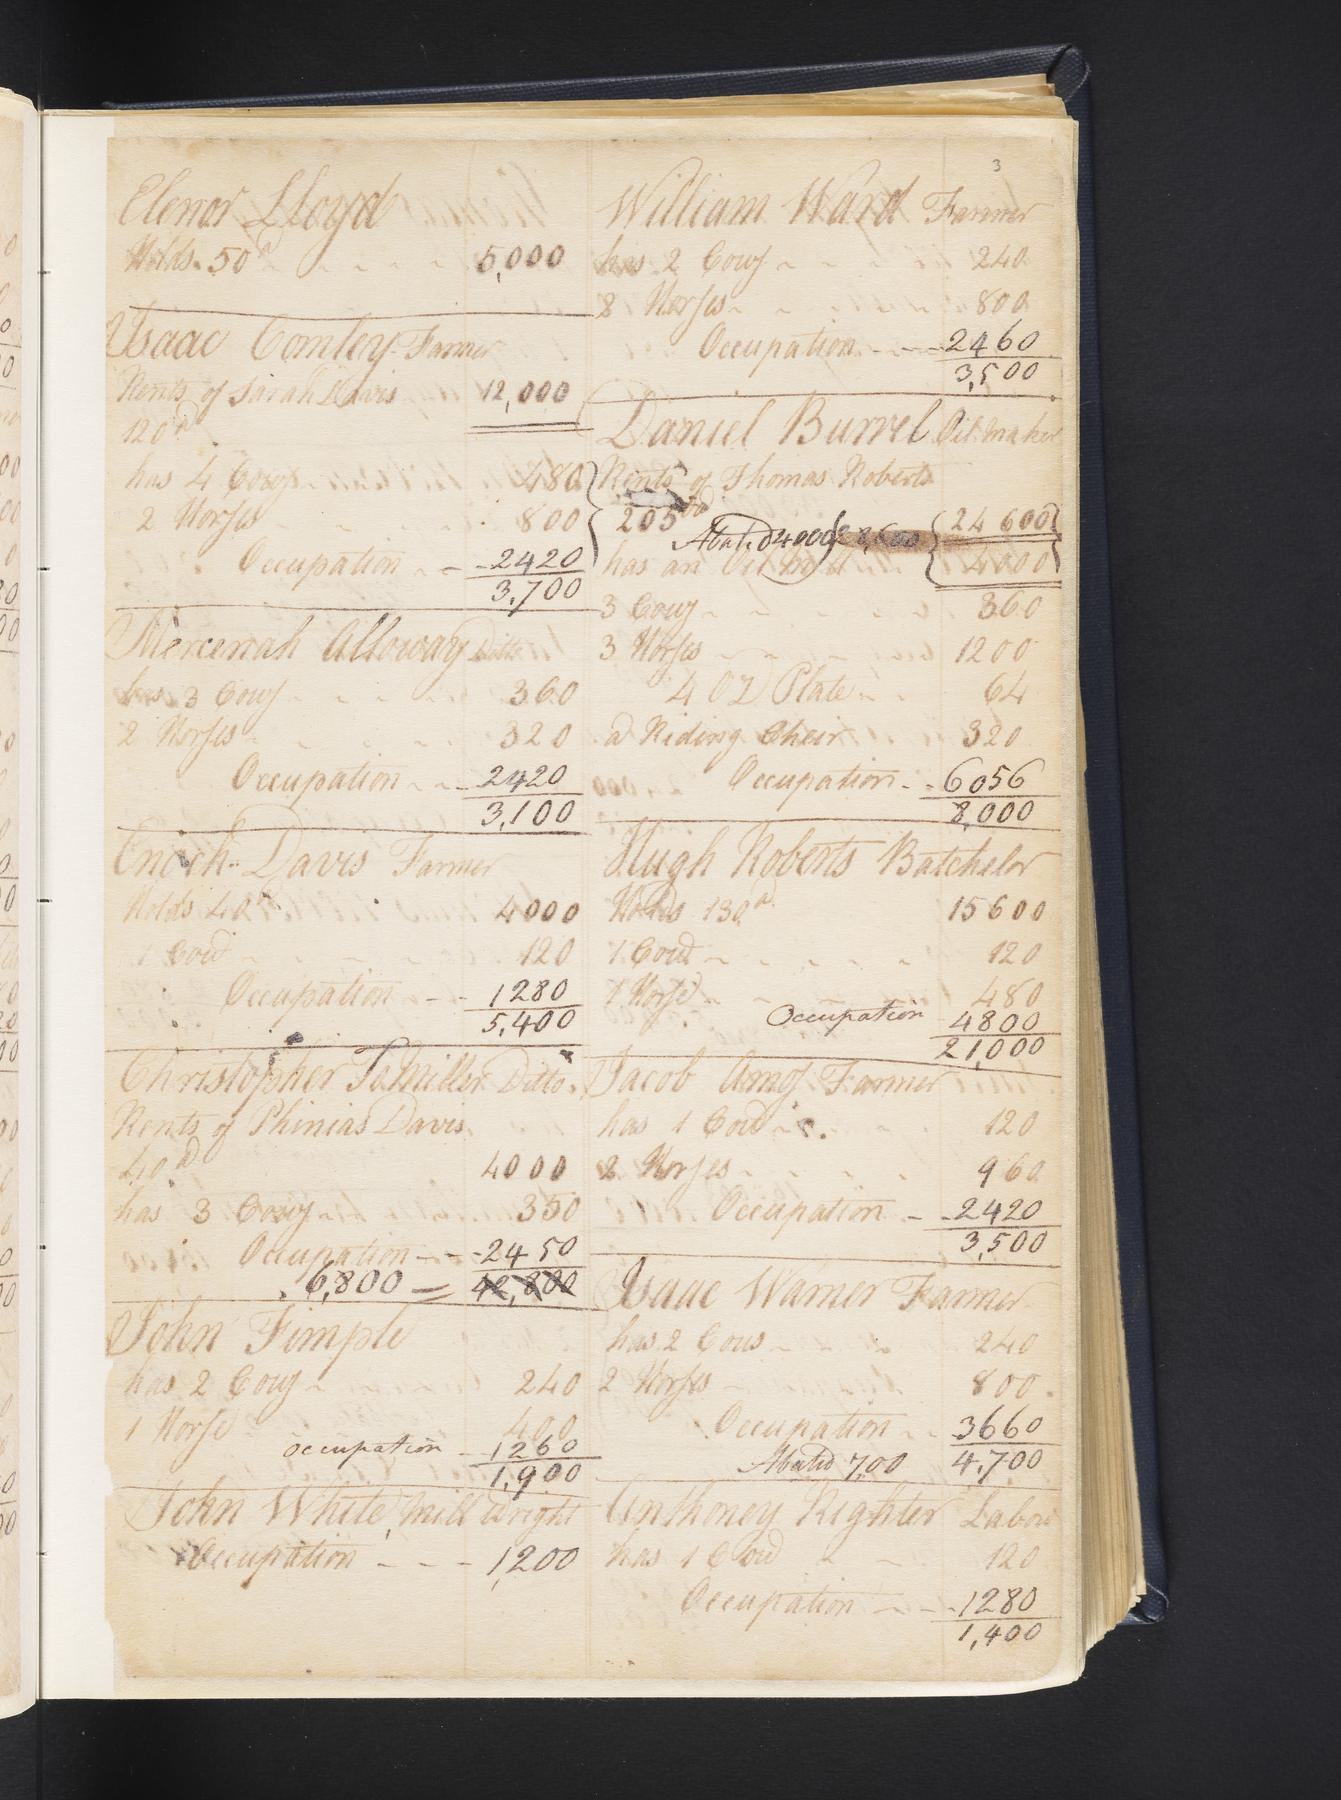 3
Elenor Lloyd
Holds 50a 5,000
Isaac Comley Farmer
Rents of Sarah Davis 12,000
120a
has 4 Cows 480
2 Horses 800
Occupation - - 2420
3,700
Mercenah Alloway Ditto
has 3 Cows 360
2 Horses 320
Occupation - - 2420
3,100
Enoch Davis Farmer
Holds 40a 4000
1 Cow 120
Occupation - - 1280
5,400
Christopher Temiller Ditto
Rents of Phinias Davis
40a 4000
has 3 Cows 350
Occupation - - 2450
6,800 = 42,800
John Fimple
has 2 Cows 240
1 Horse 400
occupation - 1260
1,900
John White, Mill wright
Occupation - - - 1,200
William Ward Farmer
has 2 Cows 240
2 Horses 800
Occupation - - - 2460
3,500
Daniel Burrel Oil maker
Rents of Thomas Roberts
205 24 600
Abated 4000 & 8,600
has an Oil Mill 4000
3 Cows 360
3 Horses 1200
4 OZ Plate 64
a Riding Cheir 320
Occupation - - 6056
8,000
Hugh Roberts Batchelor
Holds 130a 15600
1 Cow 120
1 Horse 480
Occupation 4800
21,000
Jacob Amos Farmer
has 1 Cow 120
2 Horses 960
Occupation - - 2420
3,500
Isaac Warner Farmer
has 2 Cows 240
2 Horses 800
Occupation - - 3660
Abated 700 4,700
Anthoney Righter Labor
has 1 Cow 120
Occupation - - 1280
1,400